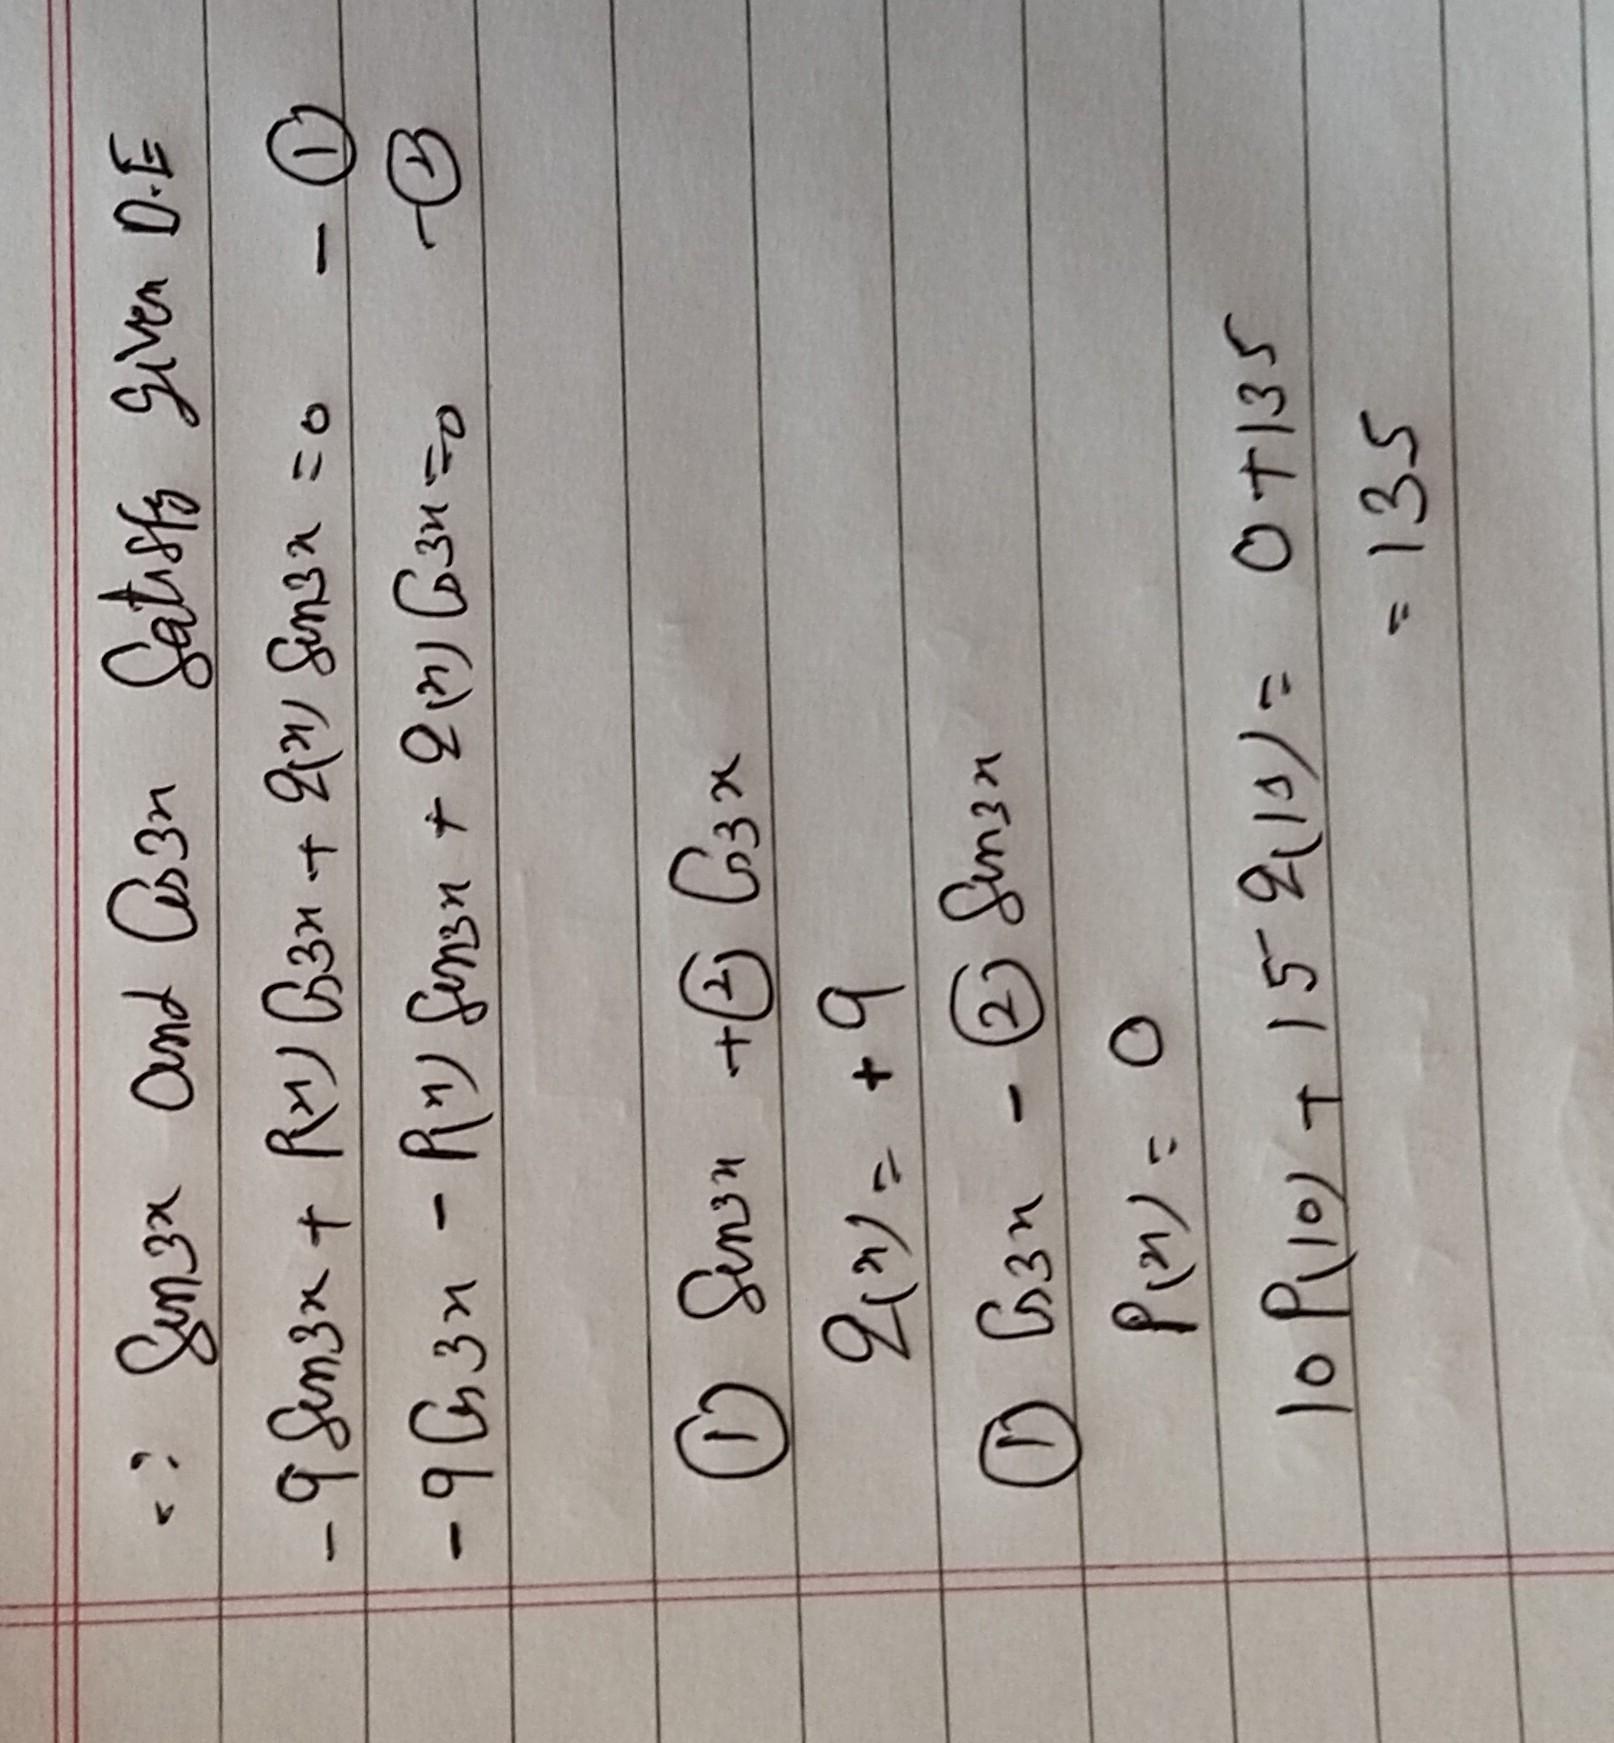 ∵ Sin3x and Cos3x Satisfy given D.E
- 9 Sin3x + P(x) Cos3x + Q(x) Sin3x = 0 - ①
- 9 Cos3x - P(x) Sin3x + Q(x) Cos3x = 0 - ②
① Sin3x + ② Cos3x
Q(x) = + 9
① Cos3x - ② Sin3x
P(x) = 0
10 P(10) + 15 Q(15) = 0 + 135
= 135